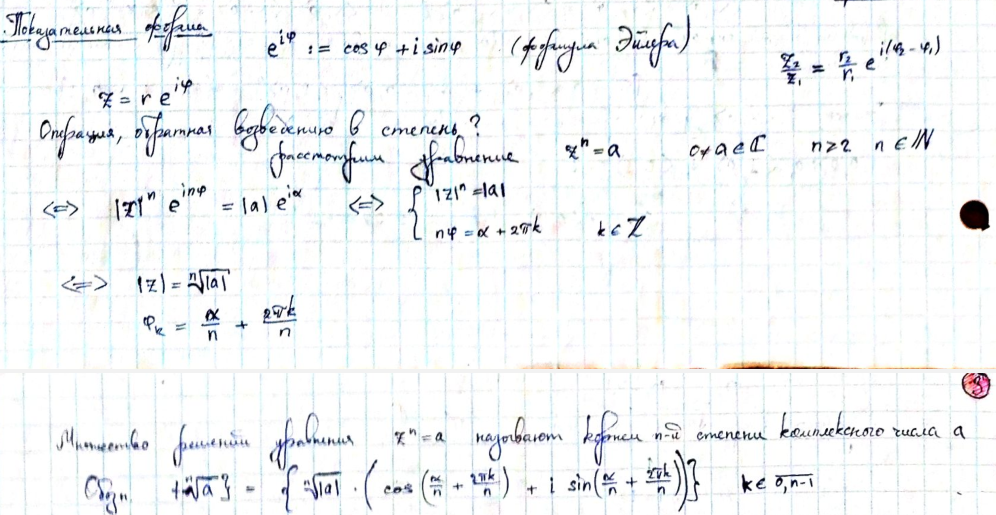 Показательная форма
e^{iφ} := cos φ + i sin φ (формула Эйлера)
z_2/z_1 = r_2/r_1 e^{i(φ_2 - φ_1)}
z = r e^{iφ}
Операция, обратная возведению в степень?
рассмотрим уравнение z^n = a 0 ≠ a ∈ ℂ n ≥ 2 n ∈ ℕ
<=> |z|^n e^{inφ} = |a| e^{iα} <=> { |z|^n = |a|
nφ = α + 2πk k ∈ ℤ
<=> |z| = \sqrt[n]{|a|}
φ_k = α/n + 2πk/n
3
Множество решений уравнения z^n = a называют корнем n-й степени комплексного числа a
Обозн. {\sqrt[n]{a}} = { \sqrt[n]{|a|} · ( cos (α/n + 2πk/n) + i sin(α/n + 2πk/n) ) } k ∈ \overline{0, n-1}